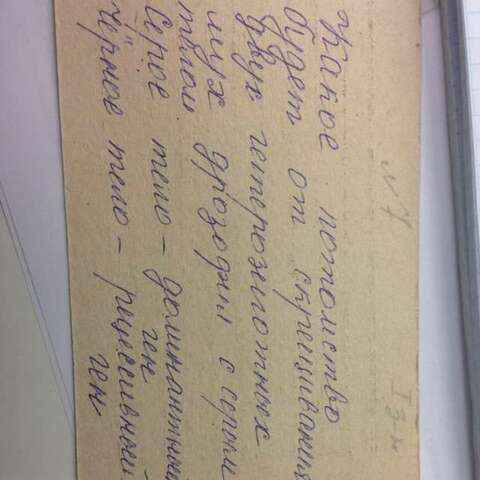 N 7 I з-н
Какое потомство
будет от скрещивания
двух гетерозиготных
мух дрозофилы с серым
телом
Серое тело - доминантный
ген
Чёрное тело - рецессивный
ген